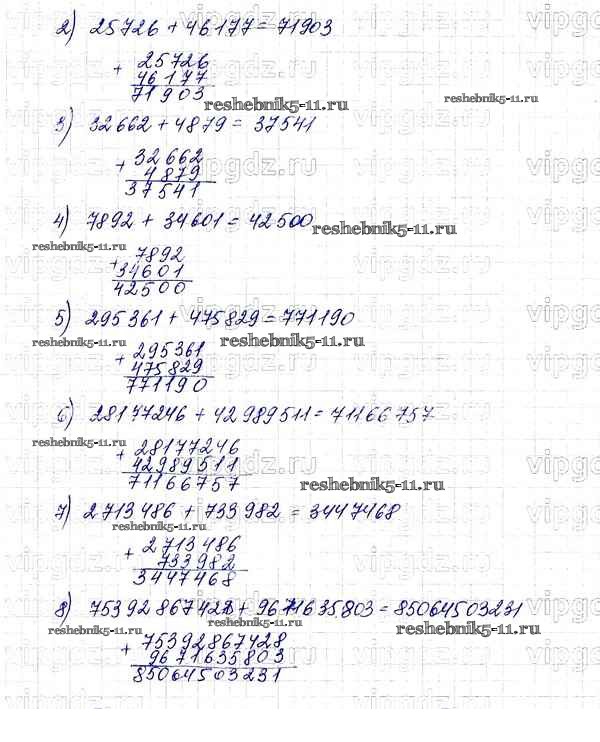 2) 25726 + 46177 = 71903
+ 25726
46177
71903
reshebnik5-11.ru
reshebnik5-11.ru
3) 32662 + 4879 = 37541
+ 32662
4879
37541
4) 7892 + 34601 = 42500
reshebnik5-11.ru
reshebnik5-11.ru
+ 7892
34601
42500
5) 295361 + 475829 = 771190
reshebnik5-11.ru
reshebnik5-11.ru
+ 295361
475829
771190
6) 28177246 + 42989511 = 71166757
reshebnik5-11.ru
+ 28177246
42989511
71166757
reshebnik5-11.ru
7) 2713486 + 733982 = 3447468
reshebnik5-11.ru
+ 2713486
733982
3447468
8) 75392867428 + 9671635803 = 85064503231
reshebnik5-11.ru
reshebnik5-11.ru
reshebnik5-11.ru
+ 75392867428
9671635803
85064503231
vipgdz.ru
vipgdz.ru
vipgdz.ru
vipgdz.ru
vipgdz.ru
vipgdz.ru
vipgdz.ru